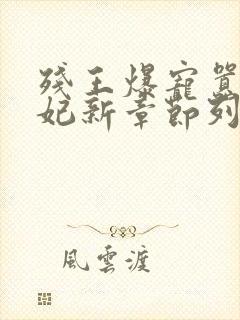 殘王爆寵囂
妃新章節列
風雲渡